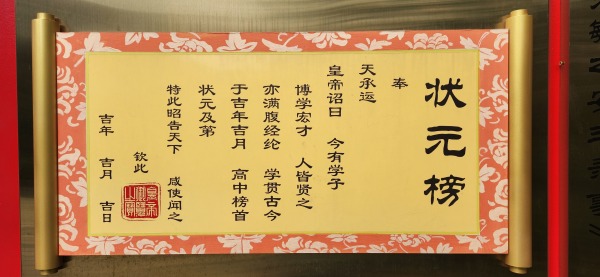 状元榜
奉
天承运
皇帝诏曰 今有学子
博学宏才 人皆贤之
亦满腹经纶 学贯古今
于吉年吉月 高中榜首
状元及第
特此昭告天下 咸使闻之
钦此
吉年 吉月 吉日